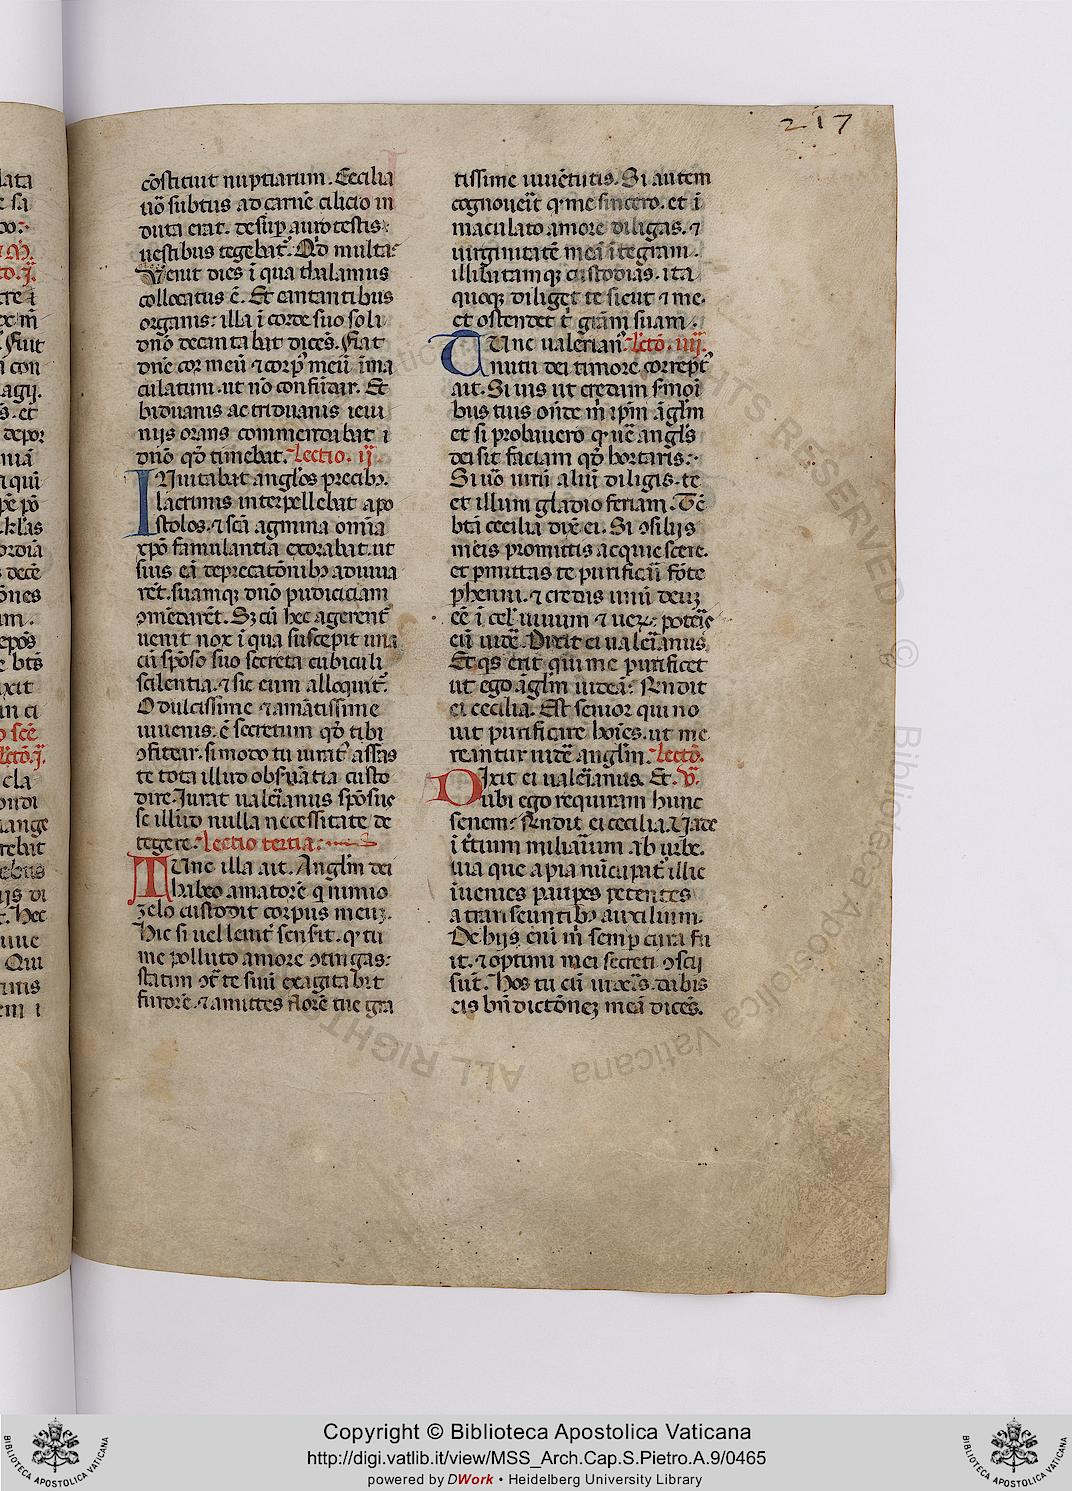 217
cõstituit nuptiarum. Cecilia
uõ subtus ad carnẽ cilicio in
duta erat. desup auro textis
uestibus tegebat. Qd multa
Venit dies ĩ qua thalamus
collocatus ẽ. Et cantantibus
organis: illa ĩ corde suo soli
dnõ decantabat dicẽs. Fiat
dnẽ cor meũ ⁊ corp meũ ĩma
culatum. ut nõ confũdar. Et
biduanis ac triduanis ieiu
niis orans commendabat ĩ
dnõ qd timebat. Lectio. ij
INuitabat anglos precib.
lacrimis interpellebat apo
stolos. ⁊ scã agmina omĩa
xpõ famulantia exorabat. ut
suis eã deprecatõnib adiuua
rẽt. suamq dnõ pudiciciam
ɔmẽdarẽt. Sz cũ hec agerent
uenit nox ĩ qua suscepit una
cũ spõso suo secreta cubiculi
scilentia. ⁊ sic eum alloquit.
O dulcissime ⁊ amãtissime
iuuenis. ẽ secretum qd tibi
ɔfitear. si modo tu iurat assas
te tota illud obsuãtia custo
dire. Iurat ualerianus spõsus
se illud nulla necessitate de
tegere. Lectio tertia:
TUnc illa ait. Anglm dei
habeo amatorẽ q nimio
zelo custodit corpus meuz.
Hic si uel leuit senserit. q tu
me polluto amore ɔtingas:
statim ɔ te suũ exagitabit
furorẽ. ⁊ amittes florẽ tue gra
tissime iuuẽtutis. Si autem
cognouerit q me sincero. et ĩ
maculato amore diligas. ⁊
uirginitatẽ meã ĩtegram.
illibatamq custodias. ita
quoq diliget te sicut ⁊ me.
et ostendet t grãm suam.
TUnc ualerian Lectõ. iiij
nutu dei timore. corrept
ait. Si uis ut credam s̃moĩ
bus tuis oñde m̃ ipm̃ ãglm
et si probauero q uẽ angls
dei sit faciam qd hortaris:
Si uõ uirũ aliũ diligis. te
et illum gladio feriam. Tũc
btã cecilia dixẽ ei. Si ɔsilijs
meis promittis acquiescere.
et pmittas te purificari fõte
phenni. ⁊ credis unũ deuz
eẽ ĩ cel uiuum ⁊ ueꝝ: poteris
eũ uidẽ. Dixit ei ualerianus
Et qs erit qui me purificet
ut ego ãglm uideã: Rndit
ei cecilia. Est senior qui no
uit purificare hoĩes. ut me
reantur uidẽ anglm. Lectõ.
DIxit ei ualerianus. Et. v.
ubi ego requiram hunc
senem: Rndit ei cecilia. Uade
ĩ t̃tium miliariũm ab urbe.
uia que apia nũcupat. illic
ĩuenies paupes petentes
a transeuntib auxilium.
De hijs. eni m̃ semp cura fu
it. ⁊ optimi mei secreti ɔscij
sũt. Hos tu cũ uiderĩs. dabis
eis bñdictõnez meã dicẽs.
Copyright © Biblioteca Apostolica Vaticana
http://digi.vatlib.it/view/MSS_Arch.Cap.S.Pietro.A.9/0465
powered by DWork • Heidelberg University Library